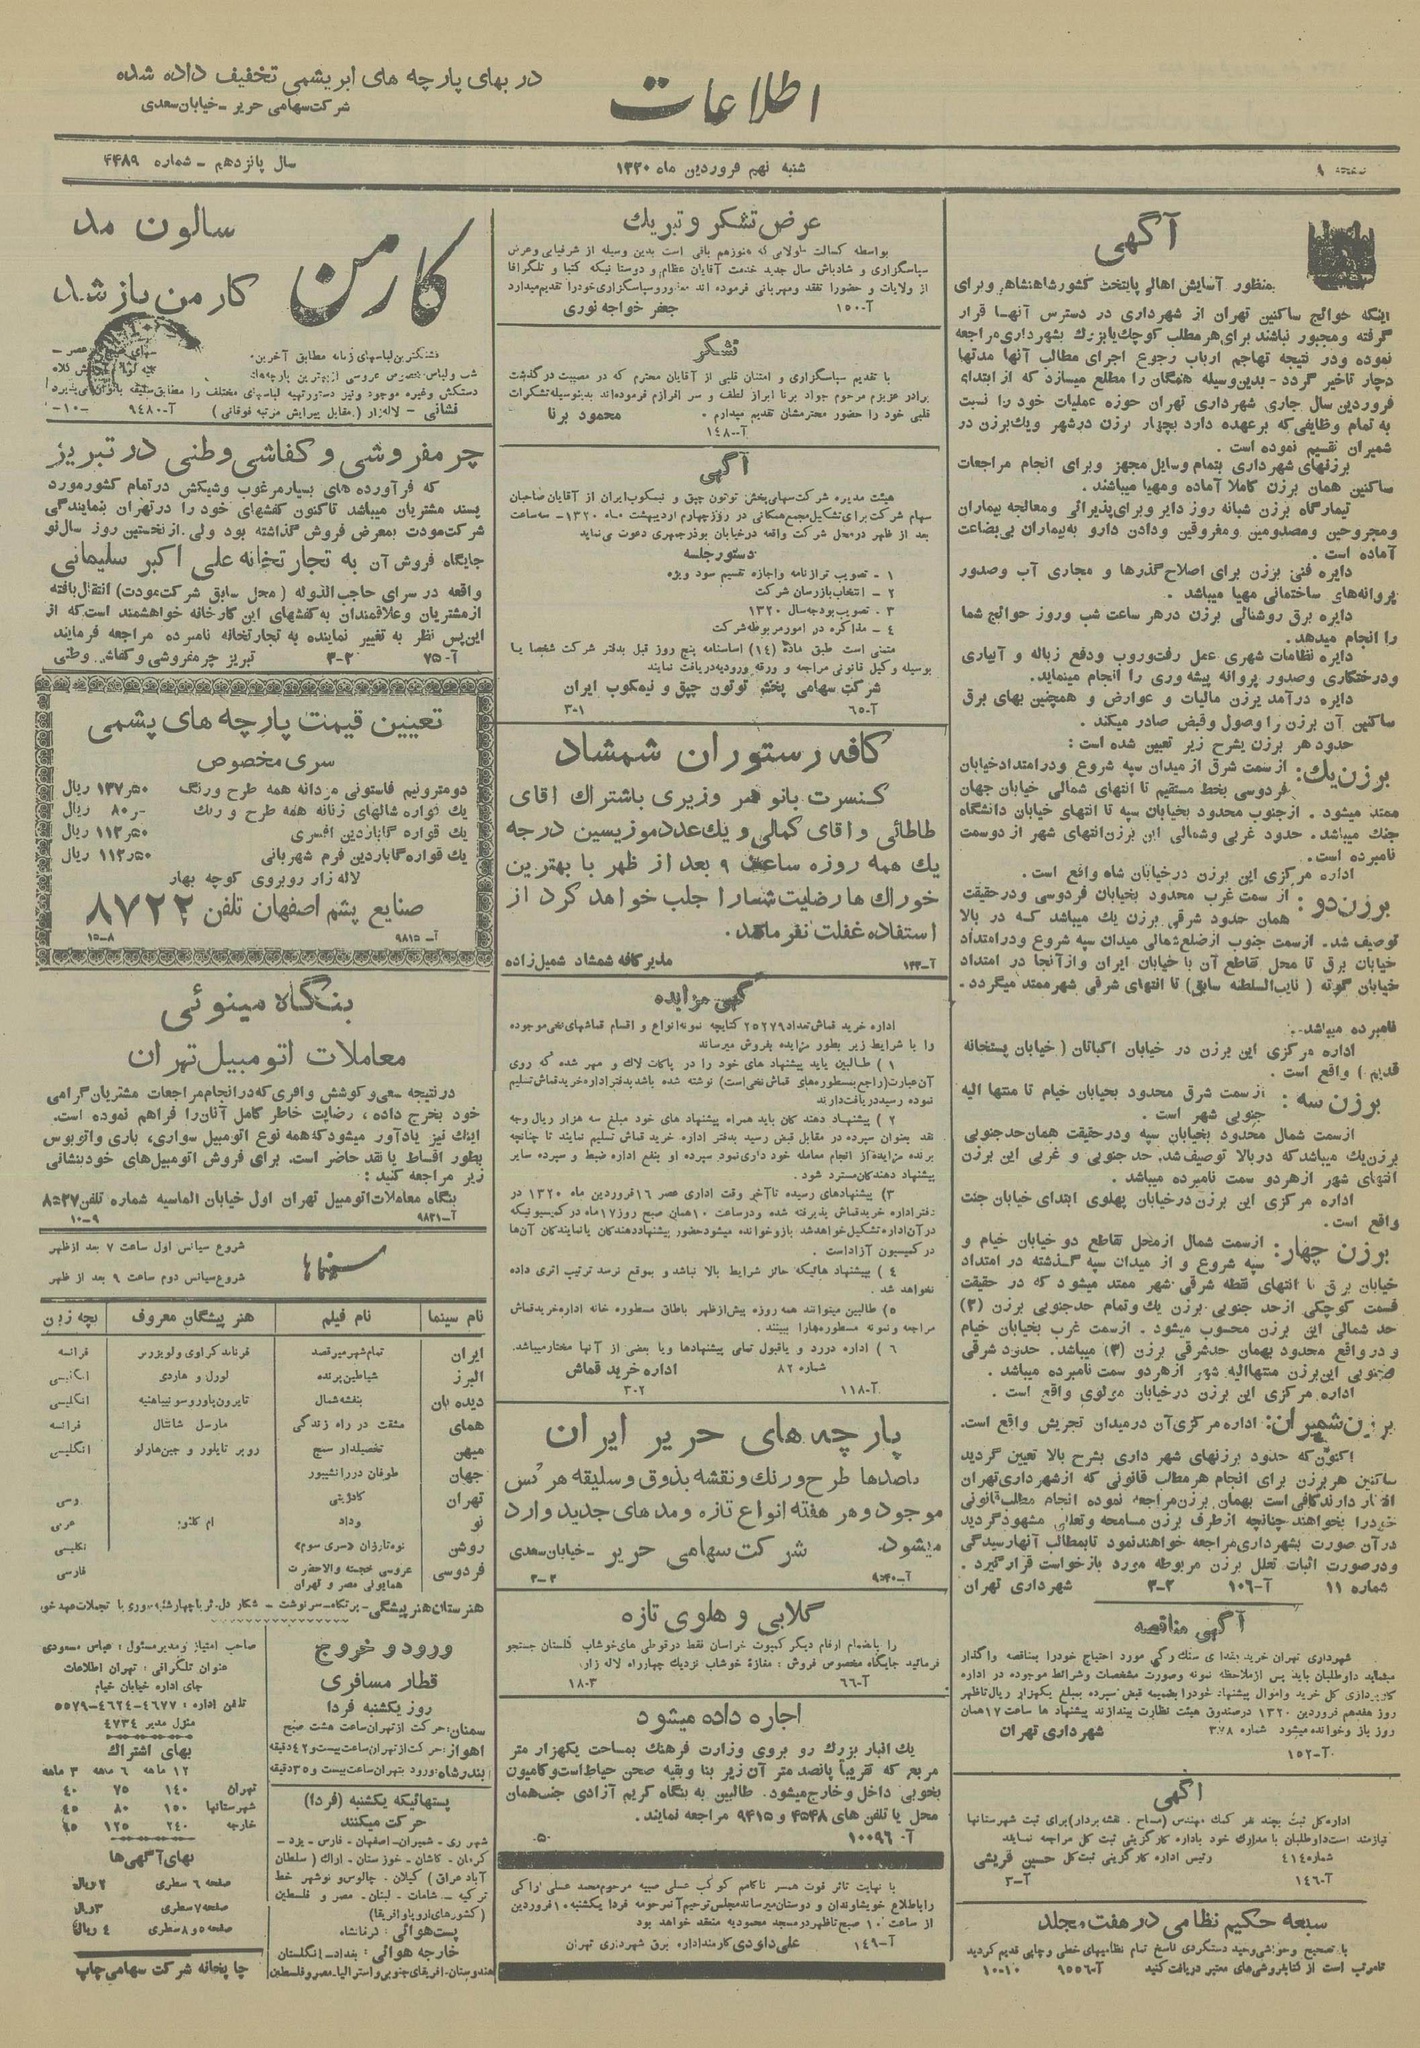 در بهای پارچه های ابریشمی تخفیف داده شده
شرکت سهامی حریر - خیابان سعدی
اطلاعات
صفحه ۹
شنبه نهم فروردین ماه ۱۳۲۰
سال پانزدهم - شماره ۴۴۸۹
آگهی
بمنظور آسایش اهالی پایتخت کشور شاهنشاهی و برای
اینکه حوائج ساکنین تهران از شهرداری در دسترس آنها قرار
گرفته و مجبور نباشند برای هر مطلب کوچك یا بزرك بشهرداری مراجعه
نموده و در نتیجه تهاجم ارباب رجوع اجرای مطالب آنها مدتها
دچار تاخیر گردد - بدین وسیله همگان را مطلع میسازد که از ابتدای
فروردین سال جاری شهرداری تهران حوزه عملیات خود را نسبت
به تمام وظایفی که برعهده دارد بچهار برزن در شهر و یك برزن در
شمیران تقسیم نموده است .
برزنهای شهرداری بتمام وسایل مجهز و برای انجام مراجعات
ساکنین همان برزن کاملا آماده و مهیا میباشند .
تیمارگاه برزن شبانه روز دایر و برای پذیرائی و معالجه بیماران
و مجروحین و مصدومین و مغروقین و دادن دارو به بیماران بی بضاعت
آماده است .
دایره فنی برزن برای اصلاح گذرها و مجاری آب و صدور
پروانه های ساختمانی مهیا میباشد .
دایره برق روشنائی برزن در هر ساعت شب و روز حوائج شما
را انجام میدهد .
دایره نظامات شهری عمل رفت و روب و دفع زباله و آبیاری
و درختکاری و صدور پروانه پیشه وری را انجام مینماید.
دایره درآمد برزن مالیات و عوارض و همچنین بهای برق
ساکنین آن برزن را وصول و قبض صادر میکند .
حدود هر برزن بشرح زیر تعیین شده است :
برزن یك: از سمت شرق از میدان سپه شروع و در امتداد خیابان
فردوسی بخط مستقیم تا انتهای شمالی خیابان جهان
ممتد میشود . از جنوب محدود بخیابان سپه تا انتهای خیابان دانشگاه
جنك میباشد. حدود غربی و شمالی این برزن انتهای شهر از دو سمت
نامبرده است .
اداره مرکزی این برزن در خیابان شاه واقع است .
برزن دو: از سمت غرب محدود بخیابان فردوسی و در حقیقت
همان حدود شرقی برزن یك میباشد که در بالا
توصیف شد. از سمت جنوب از ضلع شمالی میدان سپه شروع و در امتداد
خیابان برق تا محل تقاطع آن با خیابان ایران و از آنجا در امتداد
خیابان گوته ( نایب السلطنه سابق) تا انتهای شرقی شهر ممتد میگردد .
نامبرده میباشد .
اداره مرکزی این برزن در خیابان اکباتان ( خیابان پستخانه
قدیم ) واقع است .
برزن سه : از سمت شرق محدود بخیابان خیام تا منتها الیه
جنوبی شهر است .
از سمت شمال محدود بخیابان سپه و در حقیقت همان حد جنوبی
برزن یك میباشد که در بالا توصیف شد. حد جنوبی و غربی این برزن
انتهای شهر از هر دو سمت نامبرده میباشد .
اداره مرکزی این برزن در خیابان پهلوی ابتدای خیابان جنت
واقع است .
برزن چهار: از سمت شمال از محل تقاطع دو خیابان خیام و
سپه شروع و از میدان سپه گذشته در امتداد
خیابان برق تا انتهای نقطه شرقی شهر ممتد میشود که در حقیقت
قسمت کوچکی از حد جنوبی برزن یك و تمام حد جنوبی برزن (۲)
حد شمالی این برزن محسوب میشود . از سمت غرب بخیابان خیام
و در واقع محدود بهمان حد شرقی برزن (۳) میباشد. حدود شرقی
جنوبی این برزن منتها الیه شهر از هر دو سمت نامبرده میباشد .
اداره مرکزی این برزن در خیابان مولوی واقع است .
برزن شمیران: اداره مرکزی آن در میدان تجریش واقع است.
اکنون که حدود برزنهای شهر داری بشرح بالا تعیین گردید
ساکنین هر برزن برای انجام هر مطلب قانونی که از شهرداری تهران
دارند کافی است بهمان برزن مراجعه نموده انجام مطلب قانونی
خود را بخواهند چنانچه از طرف برزن مسامحه و تعللی مشهود گردید
در آن صورت بشهرداری مراجعه خواهند نمود تا بمطالب آنها رسیدگی
و در صورت اثبات تعلل برزن مربوطه مورد بازخواست قرار گیرد .
شماره ۱۱ آ-۱۰۶ ۳-۲ شهرداری تهران
آگهی مناقصه
شهرداری تهران خرید مقداری سنك رگی مورد احتیاج خود را بمناقصه واگذار
مینماید داوطلبان باید پس از ملاحظه نمونه و صورت مشخصات و شرایط موجوده در اداره
کارپردازی کل خرید و اموال پیشنهاد خود را بضمیمه قبض سپرده بمبلغ یکهزار ریال تا ظهر
روز هفدهم فروردین ۱۳۲۰ در صندوق هیئت نظارت بیندازند پیشنهاد ها ساعت ۱۷ همان
روز باز و خوانده میشود شماره ۳۷۸ شهرداری تهران
آ-۱۵۲
آگهی
اداره کل ثبت چند نفر کمك مهندس (مساح . نقشه بردار) برای ثبت شهرستانها
نیازمند است داوطلبان با مدارك خود باداره کارگزینی ثبت کل مراجعه نمایند
شماره ۴۱۴ رئیس اداره کارگزینی ثبت کل حسین قریشی
آ-۱۴۶ آ-۳
سبعه حکیم نظامی در هفت مجلد
با تصحیح و حواشی وحید دستگردی ناسخ تمام نظامیهای خطی و چاپی قدیم گردید
نامرتب است از کتابفروشی های معتبر دریافت کنید آ-۹۵۵۶ ۱۰-۱۰
عرض تشکر و تبریك
بواسطه کسالت طولانی که هنوز هم باقی است بدین وسیله از شرفیابی و عرض
سپاسگزاری و شادباش سال جدید خدمت آقایان عظام و دوستانیکه کتبا و تلگرافا
از ولایات و حضورا تفقد و مهربانی فرموده اند معذور و سپاسگزاری خود را تقدیم میدارد
آ-۱۵۰۰ جعفر خواجه نوری
تشکر
با تقدیم سپاسگزاری و امتنان قلبی از آقایان محترم که در مصیبت در گذشت
برادر عزیزم مرحوم جواد برنا ابراز لطف و سر افرازم فرموده اند بدینوسیله تشکرات
قلبی خود را حضور محترمشان تقدیم میدارم . محمود برنا
آ-۱۴۸۰
آگهی
هیئت مدیره شرکت سهامی پخش توتون چپق و تیمکوب ایران از آقایان صاحبان
سهام شرکت برای تشکیل مجمع همگانی در روز چهارم اردیبهشت ماه ۱۳۲۰ - سه ساعت
بعد از ظهر در محل شرکت واقع در خیابان بوذرجمهری دعوت می نماید
دستور جلسه
۱ - تصویب ترازنامه و اجازه تقسیم سود ویژه
۲ - انتخاب بازرسان شرکت
۳ - تصویب بودجه سال ۱۳۲۰
۴ - مذاکره در امور مربوطه شرکت
متمنی است طبق ماده (۱۴) اساسنامه پنج روز قبل بدفتر شرکت شخصا یا
بوسیله وکیل قانونی مراجعه و ورقه ورودیه دریافت نمایند
شرکت سهامی پخش توتون چپق و نیمکوب ایران
آ-۶۵ ۳-۱
کافه رستوران شمشاد
کنسرت بانو قمر وزیری باشتراك اقای
طاطائی و اقای کمالی و یك عده موزیسین درجه
یك همه روزه ساعت ۹ بعد از ظهر با بهترین
خوراك ها رضایت شما را جلب خواهد کرد از
استفاده غفلت نفرمائید.
آ-۱۴۳ مدیر کافه شمشاد شمیل زاده
آگهی مزایده
اداره خرید قماش تعداد ۲۵۲۷۹ کتابچه نمونه انواع و اقسام قماشهای نخی موجوده
را با شرایط زیر بطور مزایده بفروش میرساند
۱ ) طالبین باید پیشنهاد های خود را در پاکات لاك و مهر شده که روی
آن عبارت (راجع بمسطوره های قماش نخی است) نوشته شده باشد بدفتر اداره خرید قماش تسلیم
نموده رسید دریافت دارند
۲ ) پیشنهاد دهند کان باید همراه پیشنهاد های خود مبلغ سه هزار ریال وجه
نقد بعنوان سپرده در مقابل قبض رسید بدفتر اداره خرید قماش تسلیم نمایند تا چنانچه
برنده مزایده از انجام معامله خود داری نمود سپرده او بنفع اداره ضبط و سپرده سایر
پیشنهاد دهندگان مسترد شود .
۳) پیشنهادهای رسیده تا آخر وقت اداری عصر ۱۶ فروردین ماه ۱۳۲۰ در
دفتر اداره خرید قماش پذیرفته شده و در ساعت ۱۰ همان صبح روز ۱۷ ماه در کمیسیونیکه
در آن اداره تشکیل خواهد شد باز و خوانده میشود حضور پیشنهاد دهندگان یا نمایندگان آن ها
در کمیسیون آزاد است .
۴ ) پیشنهاد هائیکه حائز شرایط بالا نباشد و بموقع نرسد ترتیب اثری داده
نخواهد شد .
۵) طالبین میتوانند همه روزه پیش از ظهر باطاق مسطوره خانه اداره خرید قماش
مراجعه و نمونه مسطوره ها را ببینند .
۶ ) اداره در رد و یا قبول تمامی پیشنهادها و یا بعضی از آنها مختار میباشد.
شماره ۸۲ اداره خرید قماش
آ-۱۱۸ ۳-۲
پارچه های حریر ایران
باصدها طرح و رنك و نقشه بذوق و سلیقه هر کس
موجود و هر هفته انواع تازه و مد های جدید وارد
میشود. شرکت سهامی حریر - خیابان سعدی
گلابی و هلوی تازه
را باضمام ارقام دیگر کمپوت خراسان فقط در قوطی های خوشاب گلستان جستجو
فرمائید جایگاه مخصوص فروش : مغازة خوشاب نزدیك چهارراه لاله زار.
آ-۶۶ ۱۸-۳
اجاره داده میشود
یك انبار بزرك رو بروی وزارت فرهنك بمساحت یکهزار متر
مربع که تقریباً پانصد متر آن زیر بنا و بقیه صحن حیاط است و کامیون
بخوبی داخل و خارج میشود. طالبین به بنگاه کریم آزادی جنب همان
محل یا تلفن های ۴۵۴۸ و ۹۴۱۵ مراجعه نمایند.
آ-۱۰۰۹۶
با نهایت تاثر فوت همسر ناکامم کوکب عسلی صبیه مرحوم محمد عسلی اراکی
را باطلاع خویشاوندان و دوستان میرساند مجلس ترحیم آنمرحومه فردا یکشنبه ۱۰ فروردین
از ساعت ۱۰ صبح تا ظهر در مسجد محمودیه منعقد خواهد بود
آ-۱۴۹ علی داودی کارمند اداره برق شهرداری تهران
کارمن
سالون مد
کارمن باز شد
قشنگترین لباسهای زمانه مطابق آخرین
شب و لباس مخصوص عروسی از بهترین پارچه ها
دستکش وغیره موجود و نیز دستور تهیه لباسهای مختلف را مطابق سلیقه بانوان می پذیرد
فشانی - لاله زار (مقابل پیرایش مرتبه فوقانی ) آ-۹۴۸۰
چرمفروشی و کفاشی وطنی در تبریز
که فرآورده های بسیار مرغوب و شیکش در تمام کشور مورد
پسند مشتریان میباشد تاکنون کفشهای خود را در تهران بنمایندگی
شرکت مودت بمعرض فروش گذاشته بود ولی از نخستین روز سال نو
جایگاه فروش آن به تجارتخانه علی اکبر سلیمانی
واقعه در سرای حاجب الدوله ( محل سابق شرکت مودت) انتقال یافته
از مشتریان و علاقمندان به کفشهای این کارخانه خواهشمند است که از
این پس نظر به تغییر نماینده به تجارتخانه نامبرده مراجعه فرمایند
آ-۷۵ ۳-۲ تبریز چرمفروشی و کفاشی وطنی
تعیین قیمت پارچه های پشمی
سری مخصوص
دو متر و نیم فاستونی مردانه همه طرح و رنگ ۱۳۷ر۵۰ ریال
یك قواره شالهای زنانه همه طرح و رنك ۸۰ر- ریال
یك قواره گاباردین افسری ۱۱۲ر۵۰ ریال
یك قواره گاباردین فرم شهربانی ۱۱۲ر۵۰ ریال
لاله زار روبروی کوچه بهار
صنایع پشم اصفهان تلفن ۸۷۲۲
آ-۹۸۱۵ ۱۵-۸
بنگاه مینوئی
معاملات اتومبیل تهران
در نتیجه سعی و کوشش وافری که در انجام مراجعات مشتریان گرامی
خود بخرج داده ، رضایت خاطر کامل آنان را فراهم نموده است.
اینك نیز یادآور میشود که همه نوع اتومبیل سواری، باری و اتوبوس
بطور اقساط یا نقد حاضر است. برای فروش اتومبیل های خود بنشانی
زیر مراجعه کنید :
بنگاه معاملات اتومبیل تهران اول خیابان الماسیه شماره تلفن ۸۵۲۷
آ-۹۸۲۱ ۱۰-۹
سینماها
شروع سیانس اول ساعت ۷ بعد از ظهر
شروع سیانس دوم ساعت ۹ بعد از ظهر
نام سینما نام فیلم هنر پیشگان معروف بچه زبان
ایران تمام شهر میرقصد فرناند گراوی و لویزرنر فرانسه
البرز شیاطین پرنده لورل و هاردی انگلیسی
دیده بان بنفشه شمال تایرون پاور و سونیاهنیه انگلیسی
همای مشقت در راه زندگی مارسل شانتال فرانسه
میهن تحصیلدار سمج روبر تایلور و جین هارلو انگلیسی
جهان طوفان در رانشیپور
تهران روسی
نو وداد ام کلثوم عربی
روشن نوه تارزان «سری سوم» انگلیسی
فردوسی عروسی خجسته والاحضرت همایونی مصر و تهران فارسی
ورود و خروج
قطار مسافری
روز یکشنبه فردا
سمنان: حرکت از تهران ساعت هشت صبح
اهواز: حرکت از تهران ساعت بیست و ۴۲ دقیقه
بندرشاه: ورود بتهران ساعت بیست و ۳۵ دقیقه
پستهائیکه یکشنبه (فردا)
حرکت میکنند
شهر ری - شمیران - اصفهان - فارس - یزد -
کرمان - کاشان - خوزستان - اراك ( سلطان
آباد عراق) گیلان. چالوس و نوشهر خط
ترکیه - شامات - لبنان - مصر و فلسطین
(کشورهای اروپا و افریقا)
پست هوائی : کرمانشاه
خارجه هوائی : بغداد - انگلستان
هندوستان - افریقای جنوبی و استرالیا - مصر و فلسطین
صاحب امتیاز و مدیر مسئول : عباس مسعودی
عنوان تلگرافی : تهران اطلاعات
جای اداره خیابان خیام
تلفن اداره : ۴۶۷۷-۴۶۲۴-۵۵۷۹
منزل مدیر ۴۷۳۴
بهای اشتراك
۱۲ ماهه ۶ ماهه ۳ ماهه
تهران ۱۴۰ ۷۵ ۴۰
شهرستانها ۱۵۰ ۸۰ ۴۵
خارجه ۲۴۰ ۱۲۵ ۶۵
بهای آگهی ها
صفحه ۶ سطری ۲ ریال
صفحه ۷ سطری ۳ ریال
صفحه ۵ و ۸ سطری ۴ ریال
چاپخانه شرکت سهامی چاپ